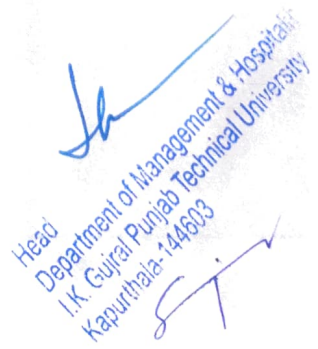 Head
Department of Management & Hospitali
I.K. Gujral Punjab Technical University
Kapurthala-144603